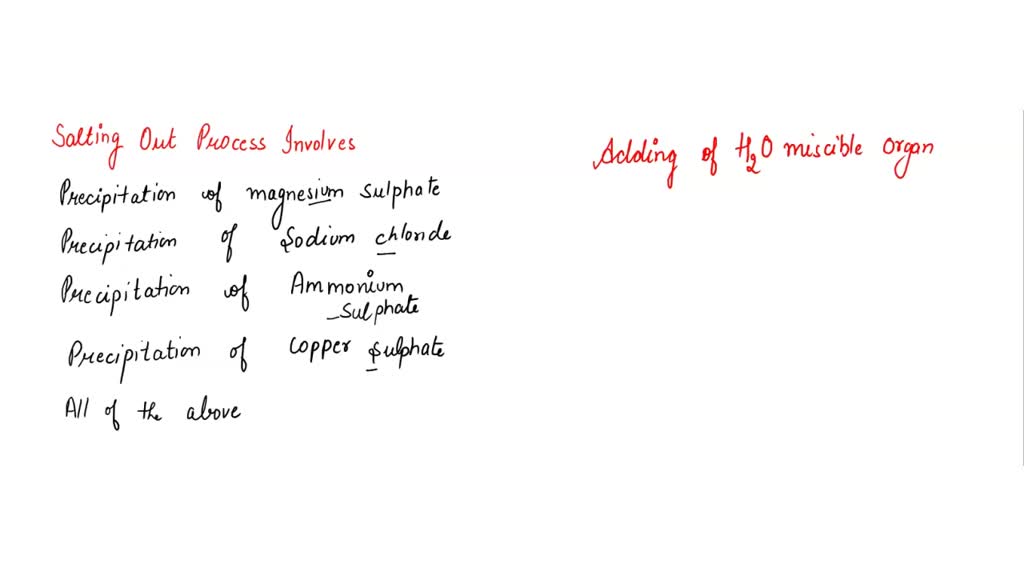 Salting Out Process Involves
Precipitation of magnesium sulphate
Precipitation of Sodium chloride
Precipitation of Ammonium
sulphate
Precipitation of Copper Sulphate
All of the above
Adding of H₂O miscible organ